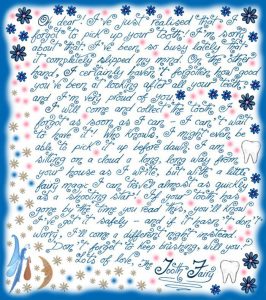 Oh dear! I've just realised that I
forgot to pick up your tooth! I'm sorry
about that. I've been so busy lately that
it completely slipped my mind. On the other
hand, I certainly haven't forgotten how good
you've been at looking after all your teeth,
and I'm very proud of you.
I will come and collect the tooth I
forgot as soon as I can – I can't wait
to have it! Who knows, I might even be
able to pick it up before dawn. I am
sitting on a cloud a long, long way from
your house as I write, but with a little
fairy magic I can travel almost as quickly
as a shooting star! If your tooth has
gone by the time you read this, you'll know
I got it safely – and if it hasn't, don't
worry, I'll come a different night instead.
Don't forget to keep brushing, will you?
Lots of love, The
Tooth Fairy